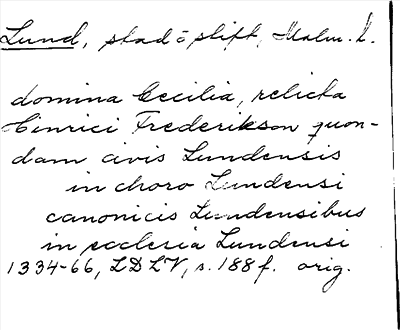 Lund, stad o stift, Malm. l.
domina Cecilia, relicta
Hinrici Frederikson quon-
dam civis Lundensis
in choro Lundensi
canonicis Lundensibus
in ecclesia Lundensi
1334-66, LDLV, s. 188 f. orig.